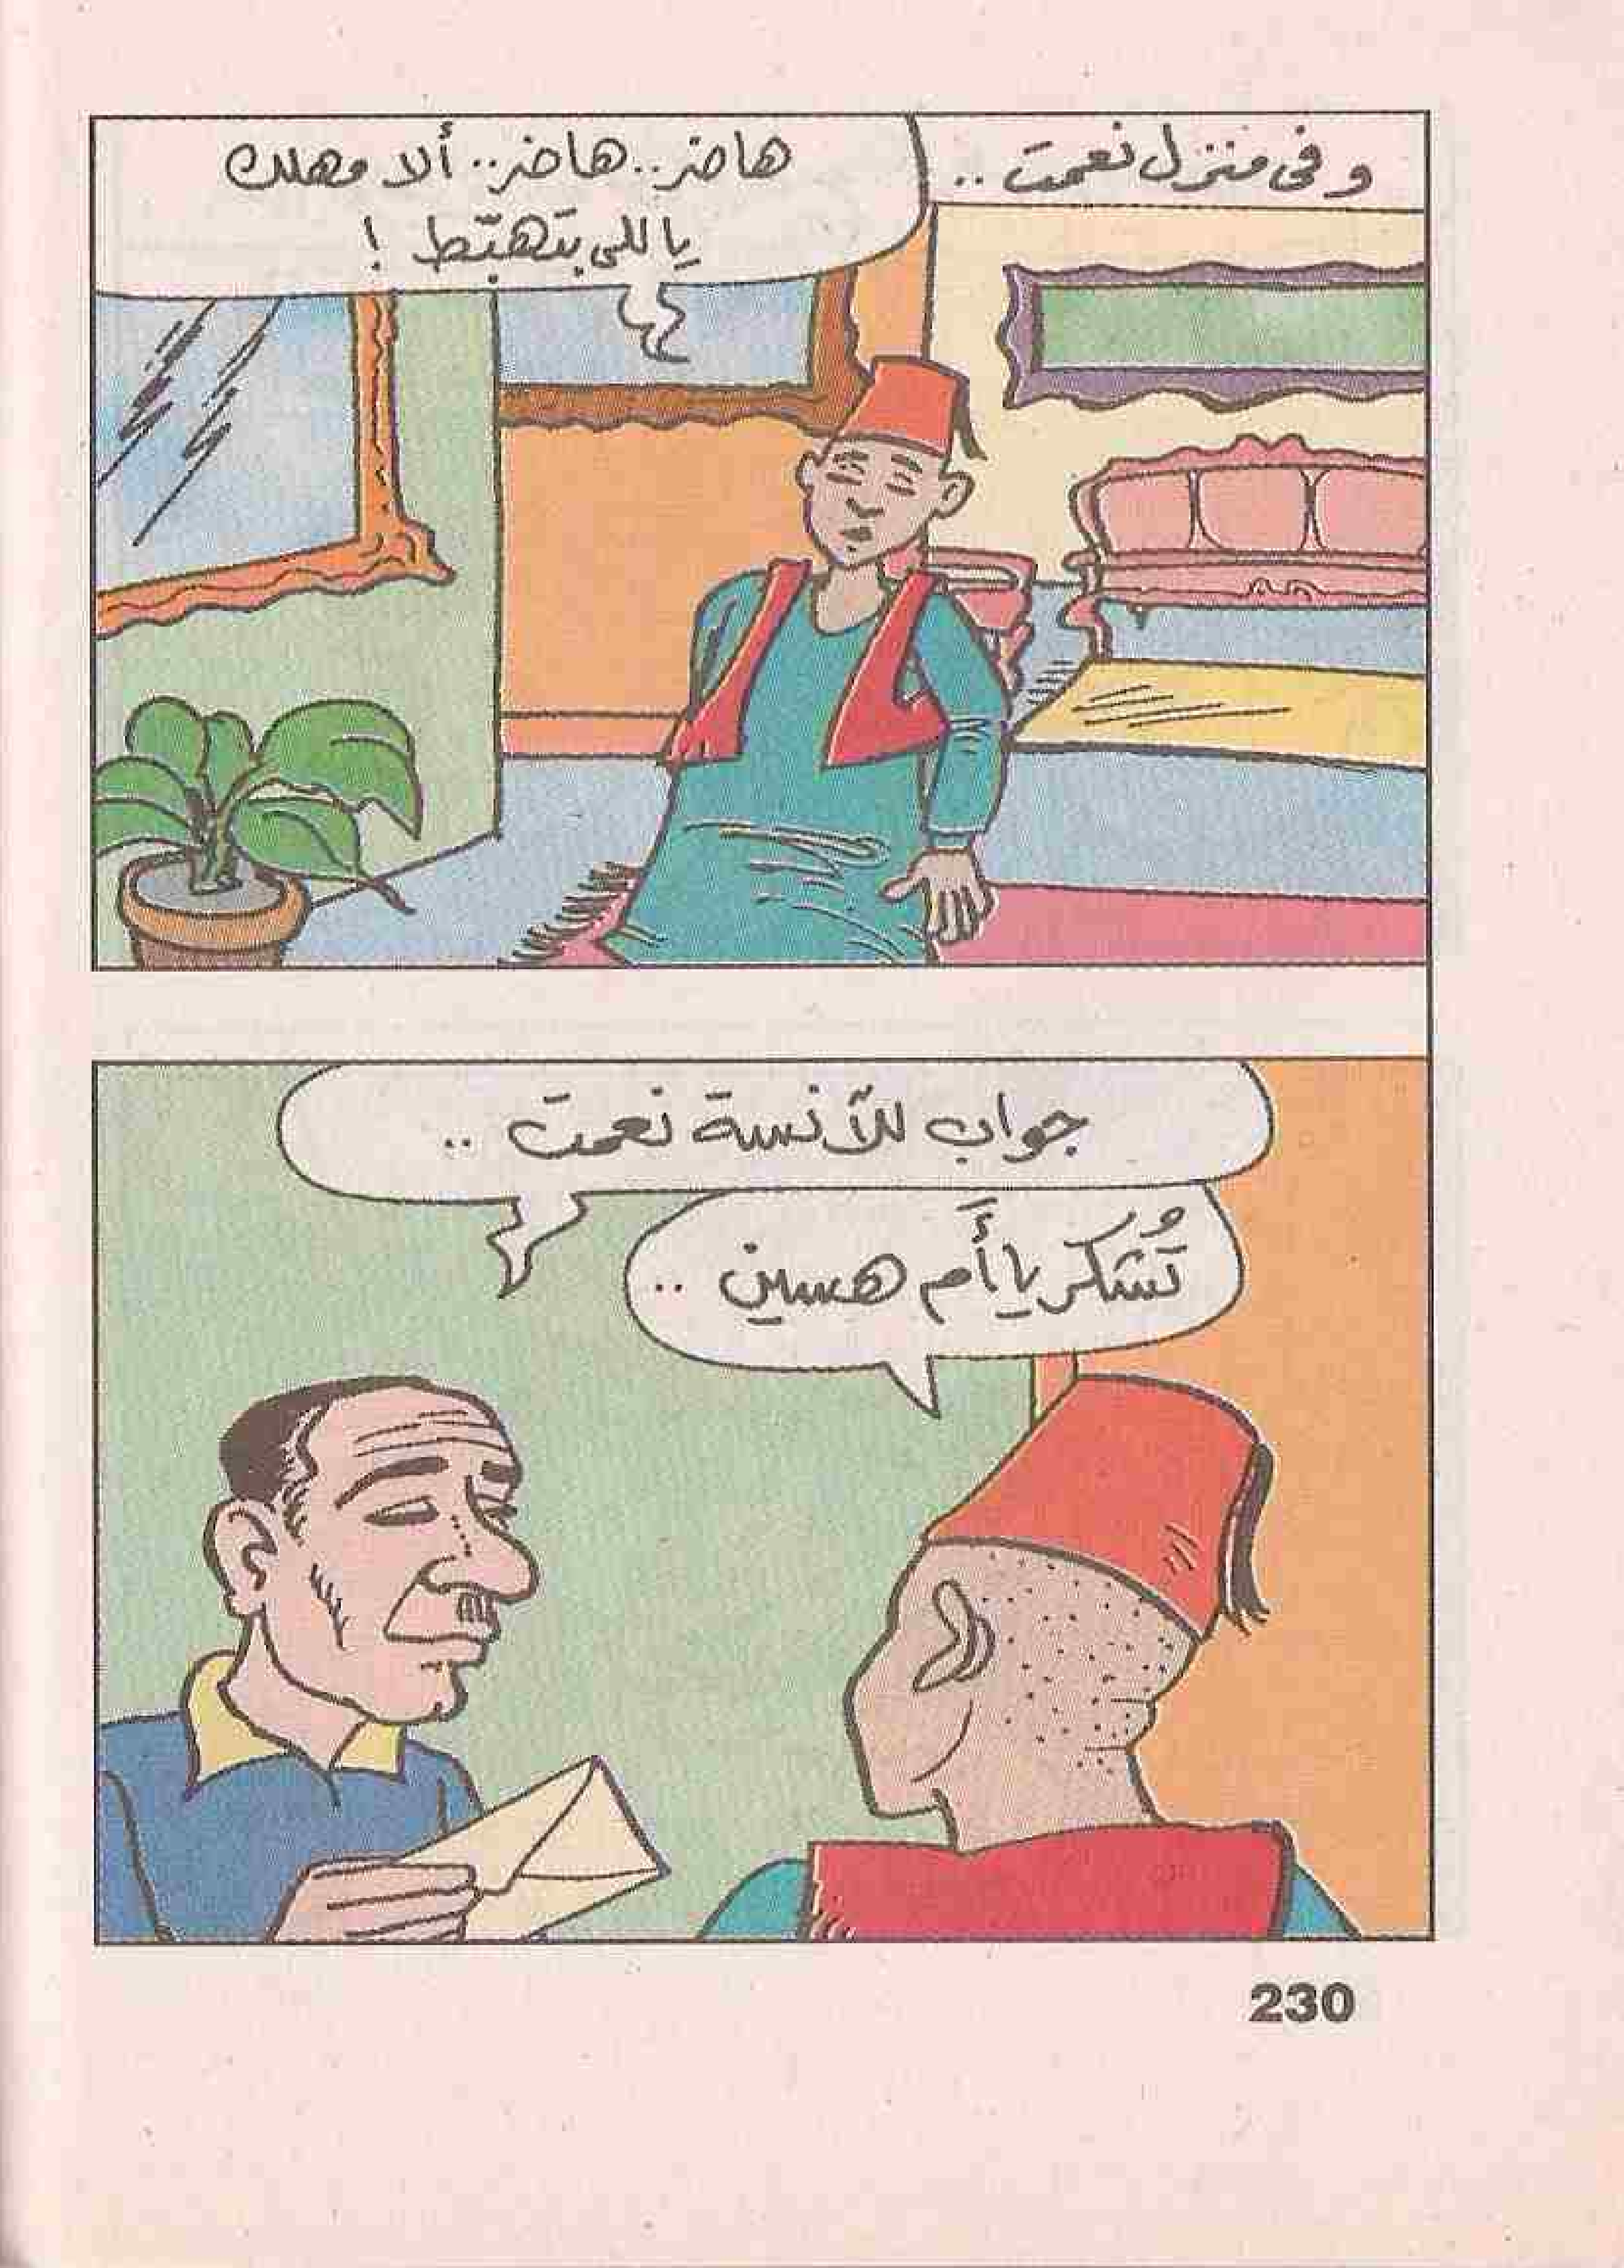 وفى منزل نعمت ..
هاضر .. هاضر .. ألا مهلك
ياللى بتهبّط !
جواب للآنسة نعمت ..
تُشكر يا أَم هسين ..
230